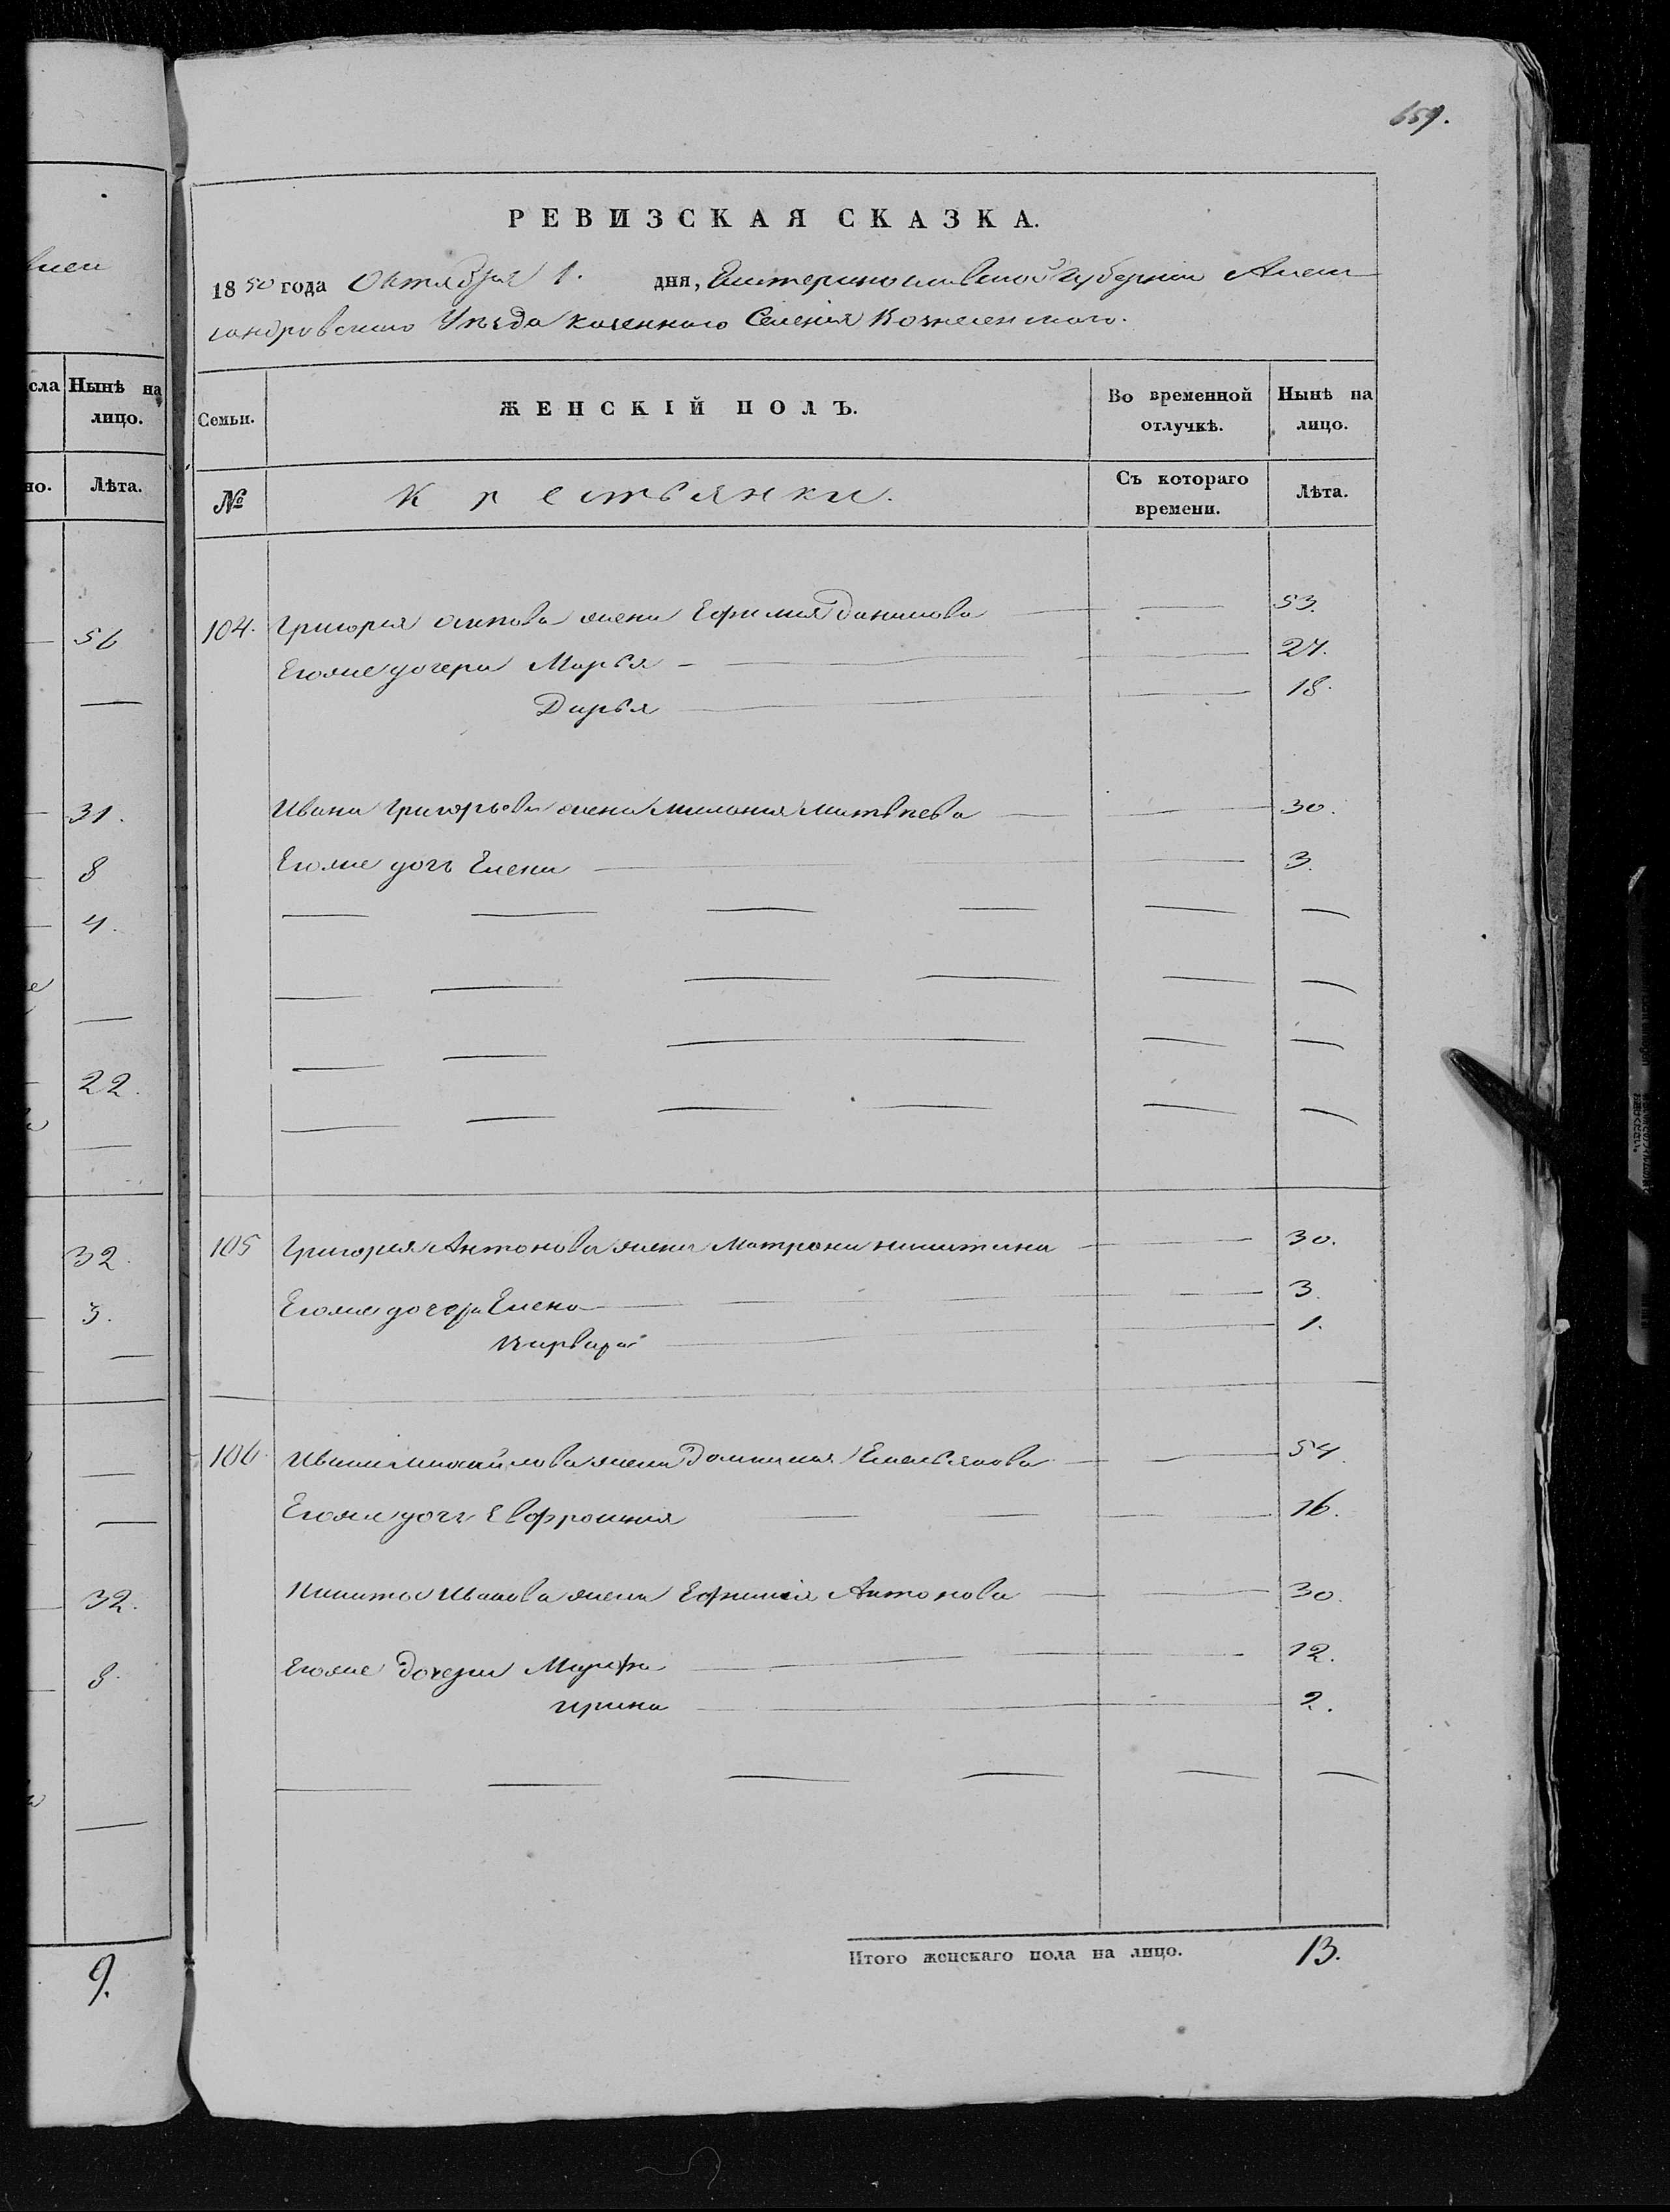 659.
РЕВИЗСКАЯ СКАЗКА.
1850 года Октября 1. дня, Екатеринославской Губернии Алек
сандровского Уѣзда казенного Селенія Вознесенского.
Семьи. ЖЕНСКІЙ ПОЛЪ. Во временной отлучкѣ. Нынѣ на лицо.
№ Крестьянки. Съ котораго времени. Лѣта.
104. Григорія Осипова жена Ефимия Данилова 53.
Егоже дочери Марья 27.
Дарья 18.
Ивана Григорьева жена Милания Матвѣева 30.
Егоже дочь Елена 3.
105 Григорія Антонова жена Матрона Никитина 30.
Егоже дочери Елена 3.
Варвара 1.
106. Ивана Михайлова жена Домникия Емельянова 54.
Егоже дочь Евфросиния 16.
Никиты Иванова жена Ефимия Антонова 30.
Егоже дочери Марфа 12.
Ирина 2.
Итого женскаго пола на лицо. 13.
сла Нынѣ на лицо.
но. Лѣта.
56
31.
8
4.
22.
32.
3.
32.
8.
9.